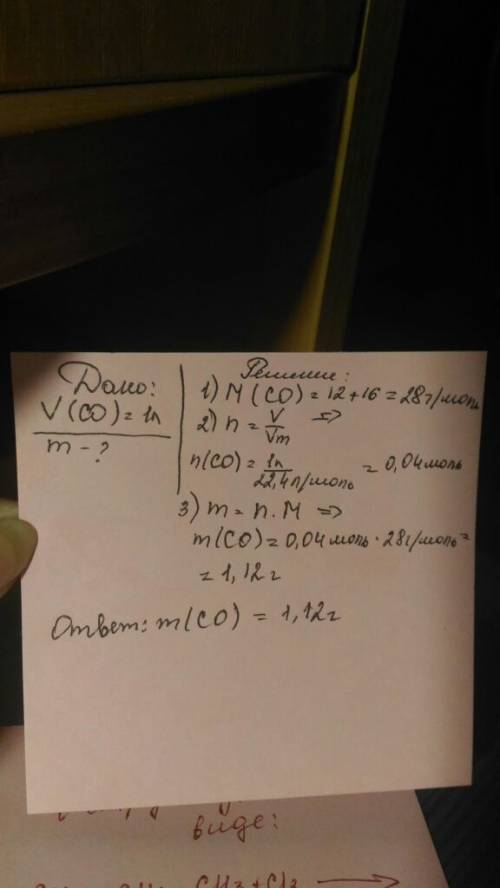 Дано:
V(CO) = 1л
m - ?
Решение:
1) M(CO) = 12+16 = 28г/моль
2) n = V/Vm =>
n(CO) = 1л/22,4л/моль = 0,04моль
3) m = n · M =>
m(CO) = 0,04моль · 28г/моль =
= 1,12г
Ответ: m(CO) = 1,12г
виде:
CH3+Cl2 →